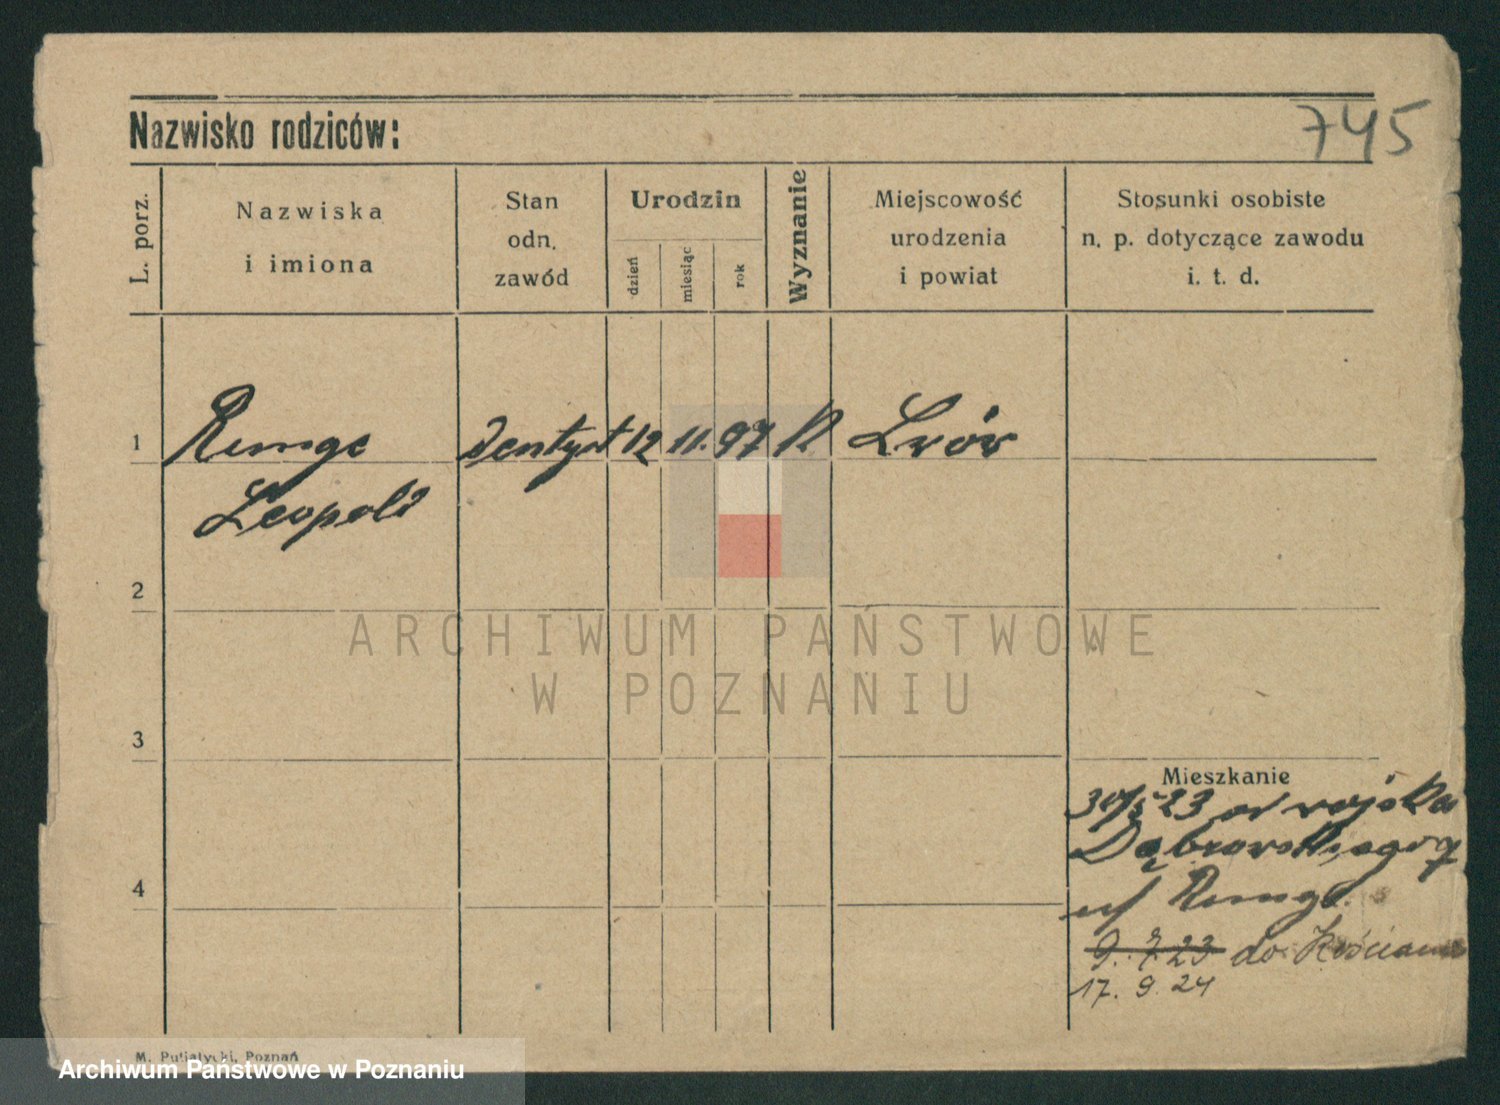 Nazwisko rodziców:
745
L. porz.
Nazwiska
i imiona
Stan
odn.
zawód
Urodzin
dzień
miesiąc
rok
Wyznanie
Miejscowość
urodzenia
i powiat
Stosunki osobiste
n. p. dotyczące zawodu
i. t. d.
1
Runge dentyst 12 11. 97 K Lwów
Leopold
2
ARCHIWUM PAŃSTWOWE
W POZNANIU
3
4
Mieszkanie
23 od wojska
Dąbrowskiego 9
Runge
9. 7. 23 do Kościana
17. 9. 24
M. Putiatycki, Poznań
Archiwum Państwowe w Poznaniu